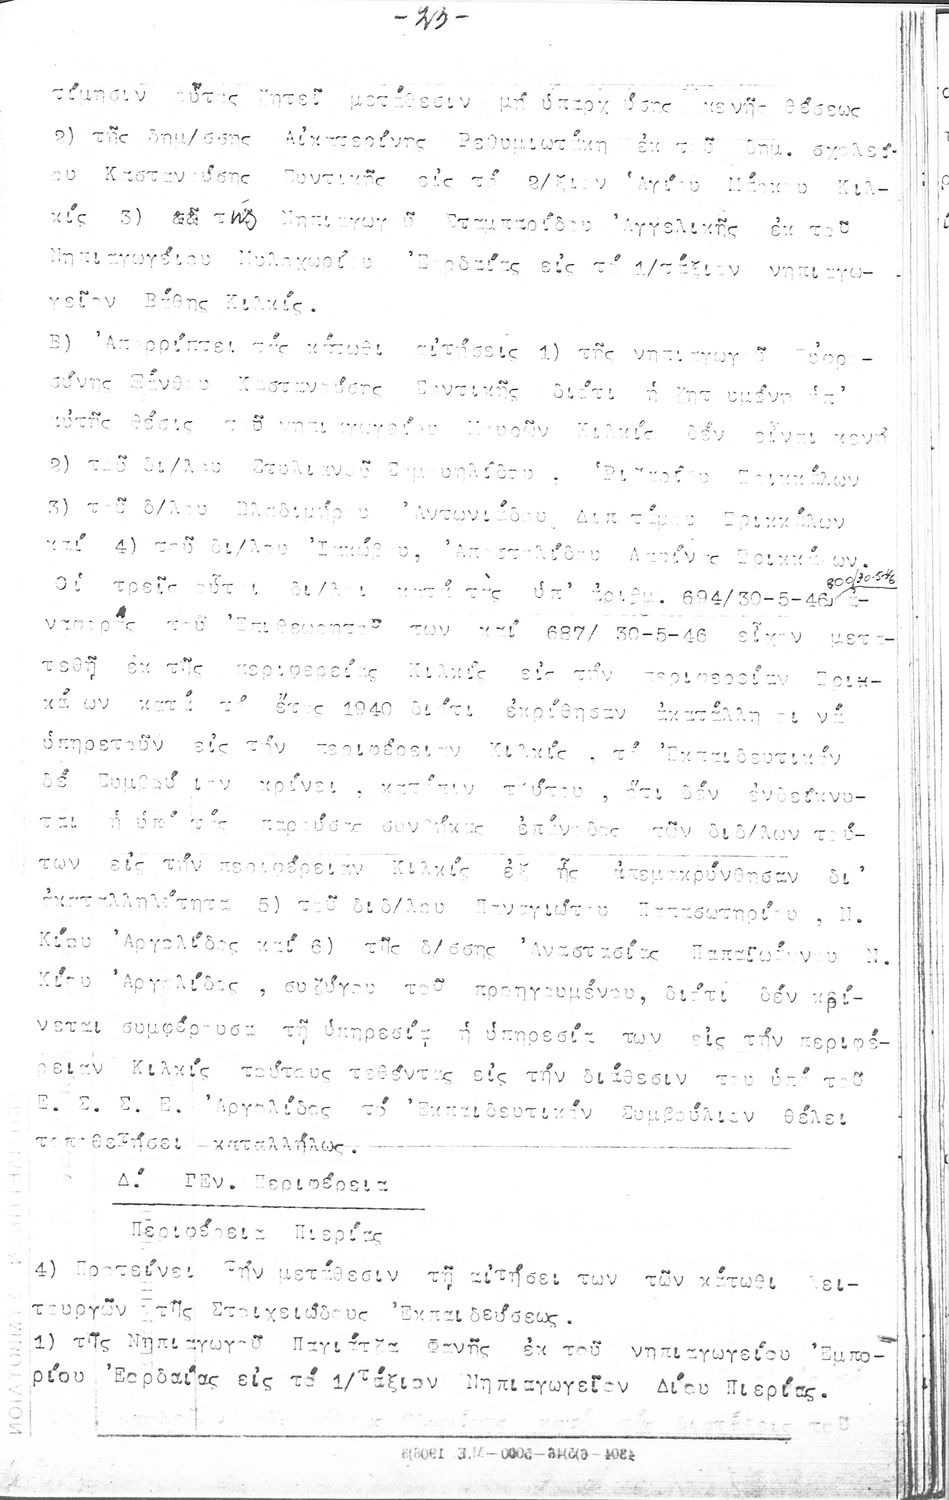 -23-
τίμησιν αὕτας ζητεῖ μετάθεσιν μή ὑπαρχούσης κενῆς θέσεως
2) τῆς δημ/σσης Αἰκατερίνης Ρεθυμιωτάκη ἐκ τοῦ δημ. σχολεί-
ου Καστανούσης Συντικῆς εἰς τό 2/ξιον Ἁγίου Μάρκου Κιλ-
κίς 3) τῆς Νηπιαγωγοῦ Σταμπαρίδου Ἀγγελικῆς ἐκ τοῦ
Νηπιαγωγείου Μυλοχωρίου Ἐορδαίας εἰς τό 1/τάξιον νηπιαγω-
γεῖον Βάθης Κιλκίς.
Β) Ἀπορρίπτει τάς κάτωθι αἰτήσεις 1) τῆς νηπιαγωγοῦ
Ξάνθου Καστανούσης Συντικῆς διότι ἡ ζητουμένη ὑπ'
αὐτῆς θέσις τοῦ νηπιαγωγείου Μουρῶν Κιλκίς δέν εἶναι κενή
2) τοῦ δι/λου Στυλιανοῦ Σαμουηλίδου, Τρικκάλων
3) τοῦ δ/λου Βλαδιμήρου Ἀντωνιάδου Τρικκάλων
καί 4) τοῦ δι/λου Ἰακώβου, Ἀποστολίδου Τρικκάλων.
Οἱ τρεῖς οὗτοι δι/λοι κατά τάς ὑπ' ἀριθμ. 694/30-5-46 800/30-5-46 ἀ-
ναφοράς τοῦ Ἐπιθεωρητοῦ των καί 687/ 30-5-46 εἶχον μετα-
τεθῆ ἐκ τῆς περιφερείας Κιλκίς εἰς τήν περιφερείαν Τρικ-
κάλων κατά τό ἔτος 1940 διότι ἐκρίθησαν ἀκατάλληλοι νά
ὑπηρετοῦν εἰς τήν περιφέρειαν Κιλκίς, τό Ἐκπαιδευτικόν
δέ Συμβούλιον κρίνει, κατόπιν τούτου, ὅτι δέν ἐνδείκνυ-
ται ἡ ὑπό τάς παρούσας συνθήκας ἐπάνοδος τῶν διδ/λων τού-
των εἰς τήν περιφέρειαν Κιλκίς ἐξ ἧς ἀπεμακρύνθησαν δι'
ἀκαταλληλότητα 5) τοῦ διδ/λου Παναγιώτου Παπασωτηρίου, Ν.
Κίου Ἀργολίδος καί 6) τῆς δ/σσης Ἀναστασίας Παπαϊωάννου Ν.
Κίου Ἀργολίδος, συζύγου τοῦ προηγουμένου, διότι δέν κρί-
νεται συμφέρουσα τῇ ὑπηρεσίᾳ ἡ ὑπηρεσία των εἰς τήν περιφέ-
ρειαν Κιλκίς τούτους τεθέντας εἰς τήν διάθεσιν του ὑπό τοῦ
Ε. Σ. Σ. Ε. Ἀργολίδος τό Ἐκπαιδευτικόν Συμβούλιον θέλει
τοποθετήσει καταλλήλως.
Δ. ΓΕν. Περιφέρεια
Περιφέρεια Πιερίας
4) Προτείνει τήν μετάθεσιν τῇ αἰτήσει των τῶν κάτωθι λει-
τουργῶν τῆς Στοιχειώδους Ἐκπαιδεύσεως.
1) τῆς Νηπιαγωγοῦ Παγιάτζα Φανῆς ἐκ τοῦ νηπιαγωγείου Ἐμπο-
ρίου Ἐορδαίας εἰς τό 1/τάξιον Νηπιαγωγεῖον Δίου Πιερίας.